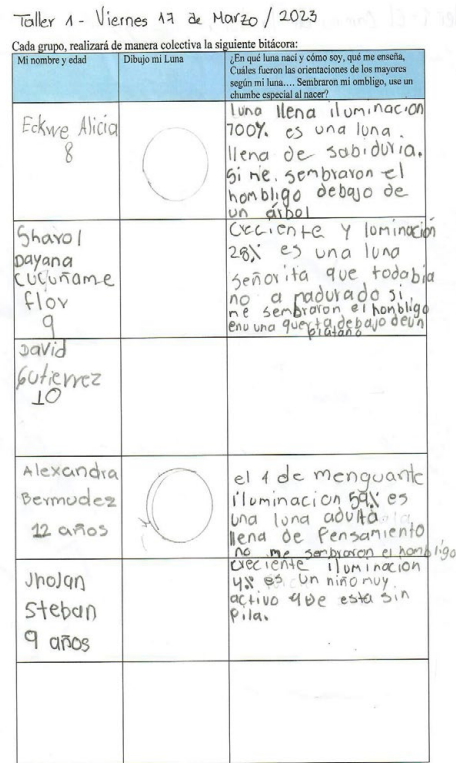 Taller 1 - Viernes 17 de Marzo / 2023
Cada grupo, realizará de manera colectiva la siguiente bitácora:
Mi nombre y edad
Dibujo mi Luna
¿En qué luna nací y cómo soy, qué me enseña,
Cuáles fueron las orientaciones de los mayores
según mi luna.... Sembraron mi ombligo, use un
chumbe especial al nacer?
Eckwe Alicia
8
luna llena iluminacion
100% es una luna
llena de sabiduria.
si me. sembraron el
hombligo debajo de
un árbol
Sharol
Dayana
cucuñame
flor
9
creciente y lominacion
28% es una luna
señorita que todabia
no a madurado si
me sembraron el honbligo
enu una querta debajo deun
platano
David
Gutierrez
10
Alexandra
Bermudez
12 años
el 1 de menguante
iluminacion 59% es
una luna adulta
llena de Pensamiento
no me senbraron el honbligo
Jholan
Steban
9 años
creciente iluminacion
4% es un niño muy
activo que esta sin
Pila.